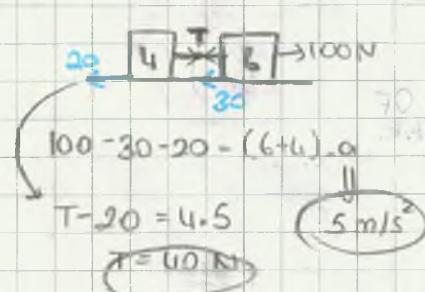 T
20 4 6 →100N
30
100-30-20 = (6+4).a
T-20 = 4.5
5 m/s²
T = 40 N